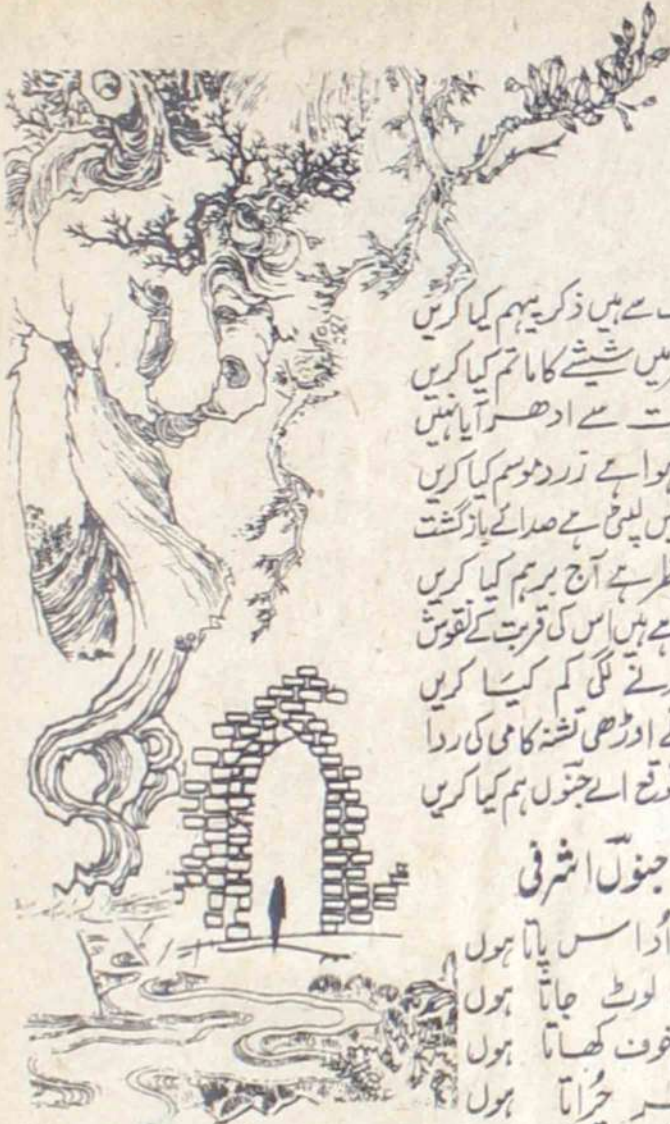 سے ہیں ذکر پیہم کیا کریں
میں شیشے کا ماتم کیا کریں
سے ادھر آیا نہیں
ہوا ہے زرد موسم کیا کریں
لپٹی ہے صدائے بازگشت
ہے آج برہم کیا کریں
ہیں اس کی قربت کے نقوش
لگی کم کیا کریں
اوڑھی تشنہ کامی کی ردا
اے جنوں ہم کیا کریں
جنوں اشرفی
اداس پاتا ہوں
لوٹ جاتا ہوں
خوف کھاتا ہوں
چراتا ہوں